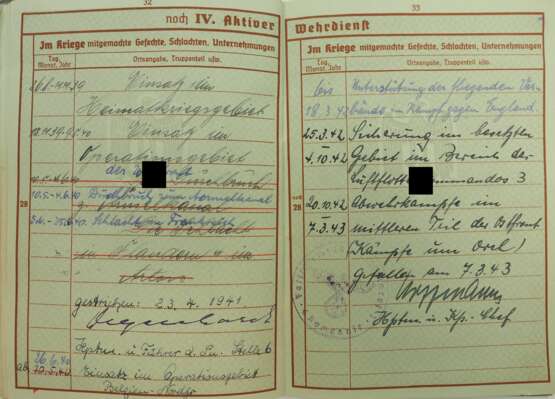 32
noch IV. Aktiver
Im Kriege mitgemachte Gefechte, Schlachten, Unternehmungen
Tag, Monat, Jahr
Ortsangabe, Truppenteil usw.
26.8.-11.9.39 Einsatz im
Heimatkriegsgebiet
Einsatz im
Operationsgebiet
der
10.5.-4.6.40 Durchbruch zum Armelkanal
5.6.-25.6.40 Schlacht in Frankreich
in Flandern u. im
Artois
28
gestrichen: 23. 4. 1941
Hptm. u. Führer d.
26.6.40
ab 10.5.40 Einsatz im Operationsgebiet
Belgien-Nordfr.
33
Wehrdienst
Im Kriege mitgemachte Gefechte, Schlachten, Unternehmungen
Tag, Monat, Jahr
Ortsangabe, Truppenteil usw.
bis Unterstützung der fliegenden Ver-
18.3.42 bände im Kampf gegen England.
25.3.42 Sicherung im besetzten
4.10.42 Gebiet im Bereich des
Luftflottenkommandos 3
noch 28
20.10.42 Abwehrkämpfe im
7.3.43 mittleren Teil der Ostfront
(Kämpfe um Orel)
gefallen am 7.3.43
Hptm. u. Kp. Chef